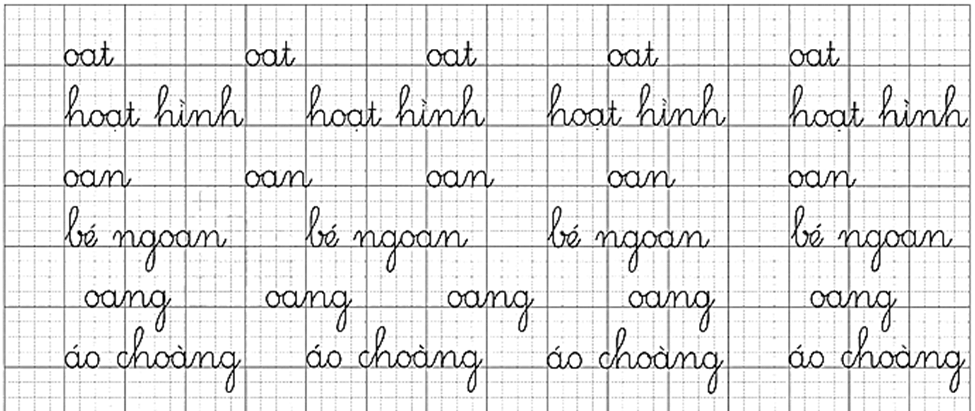 oat oat oat oat oat
hoạt hình hoạt hình hoạt hình hoạt hình
oan oan oan oan oan
bé ngoan bé ngoan bé ngoan bé ngoan
oang oang oang oang oang
áo choàng áo choàng áo choàng áo choàng